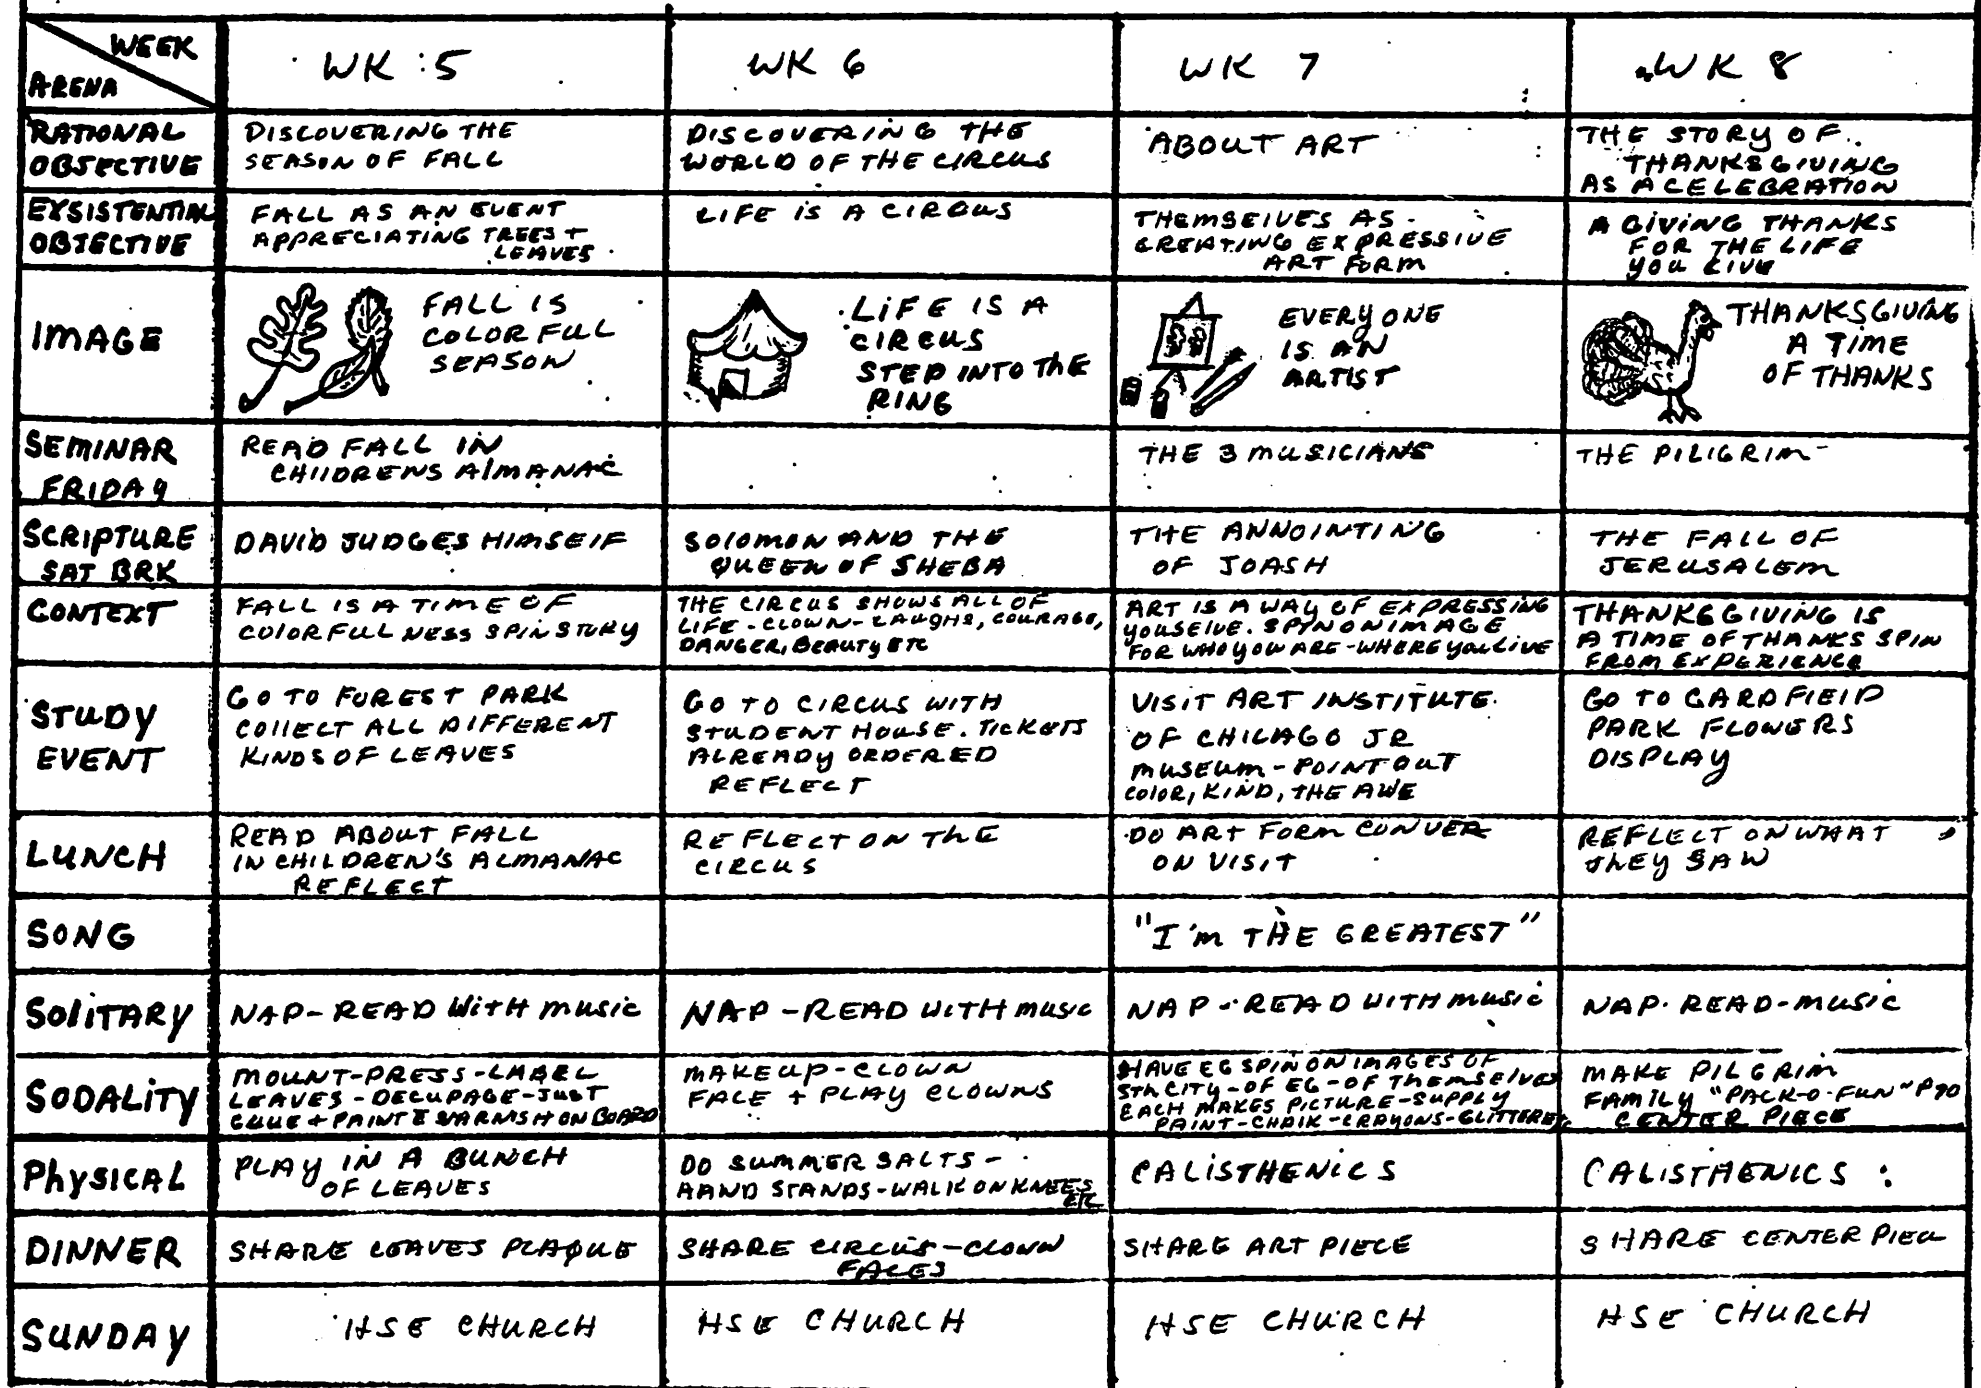 WEEK
ARENA
WK 5
WK 6
WK 7
WK 8
RATIONAL
OBJECTIVE
DISCOVERING THE
SEASON OF FALL
DISCOVERING THE
WORLD OF THE CIRCUS
ABOUT ART
THE STORY OF
THANKSGIVING
AS A CELEBRATION
EXSISTENTIAL
OBJECTIVE
FALL AS AN EVENT
APPRECIATING TREES +
LEAVES
LIFE IS A CIRCUS
THEMSELVES AS
CREATING EXPRESSIVE
ART FORM
A GIVING THANKS
FOR THE LIFE
YOU LIVE
IMAGE
FALL IS
COLORFULL
SEASON
LIFE IS A
CIRCUS
STEP INTO THE
RING
EVERYONE
IS AN
ARTIST
THANKSGIVING
A TIME
OF THANKS
SEMINAR
FRIDAY
READ FALL IN
CHILDRENS ALMANAC
THE 3 MUSICIANS
THE PILIGRIM
SCRIPTURE
SAT BRK
DAVID JUDGES HIMSELF
SOLOMON AND THE
QUEEN OF SHEBA
THE ANNOINTING
OF JOASH
THE FALL OF
JERUSALEM
CONTEXT
FALL IS A TIME OF
COLORFULLNESS SPIN STORY
THE CIRCUS SHOWS ALL OF
LIFE - CLOWN - LAUGHS, COURAGE,
DANGER, BEAUTY ETC
ART IS A WAY OF EXPRESSING
YOUSELVE. SPIN ON IMAGE
FOR WHO YOU ARE - WHERE YOU LIVE
THANKSGIVING IS
A TIME OF THANKS SPIN
FROM EXPERIENCE
STUDY
EVENT
GO TO FOREST PARK
COLLECT ALL DIFFERENT
KINDS OF LEAVES
GO TO CIRCUS WITH
STUDENT HOUSE. TICKETS
ALREADY ORDERED
REFLECT
VISIT ART INSTITUTE
OF CHICAGO JR
MUSEUM - POINT OUT
COLOR, KIND, THE AWE
GO TO GARDFIELD
PARK FLOWERS
DISPLAY
LUNCH
READ ABOUT FALL
IN CHILDREN'S ALMANAC
REFLECT
REFLECT ON THE
CIRCUS
DO ART FORM CONVER
ON VISIT
REFLECT ON WHAT
THEY SAW
SONG
"I'M THE GREATEST"
SOLITARY
NAP - READ WITH MUSIC
NAP - READ WITH MUSIC
NAP - READ WITH MUSIC
NAP. READ - MUSIC
SODALITY
MOUNT-PRESS-LABEL
LEAVES - DECUPAGE - JUST
GLUE + PAINT E VARNISH ON BOARD
MAKEUP - CLOWN
FACE + PLAY CLOWNS
HAVE EG SPIN ON IMAGES OF
5TH CITY - OF EG - OF THEMSELVES
EACH MAKES PICTURE - SUPPLY
PAINT - CHALK - CRAYONS - GLITTER ETC
MAKE PILGRIM
FAMILY "PACK-O-FUN" P90
CENTER PIECE
PHYSICAL
PLAY IN A BUNCH
OF LEAVES
DO SUMMER SALTS -
HAND STANDS - WALK ON KNEES
ETC
CALISTHENICS
CALISTHENICS
DINNER
SHARE LEAVES PLAQUE
SHARE CIRCUS - CLOWN
FACES
SHARE ART PIECE
SHARE CENTER PIECE
SUNDAY
HSE CHURCH
HSE CHURCH
HSE CHURCH
HSE CHURCH